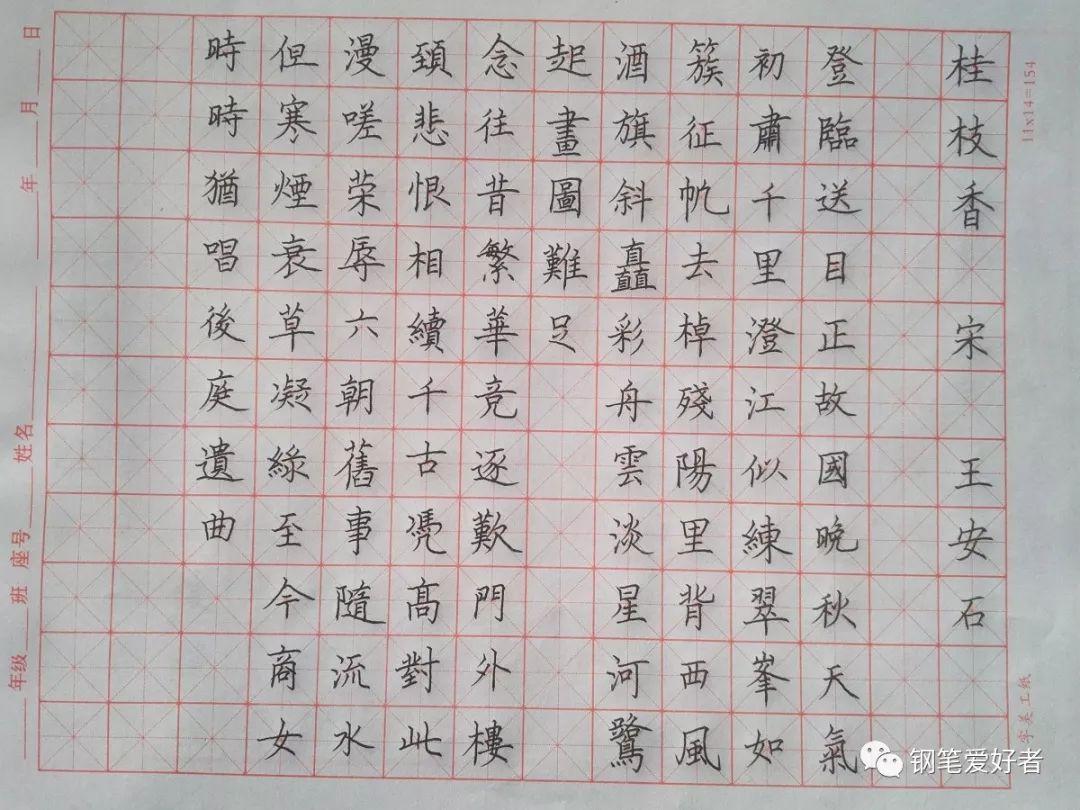 桂枝香 宋 王安石
登臨送目正故國晚秋天氣
初肅千里澄江似練翠峯如
簇征帆去棹殘陽里背西風
酒旗斜矗彩舟雲淡星河鷺
起畫圖難足
念往昔繁華竞逐歎門外樓
頭悲恨相續千古凴高對此
漫嗟荣辱六朝舊事隨流水
但寒煙衰草凝綠至今商女
時時猶唱後庭遺曲
年级 班 座号 姓名 年 月 日
11x14=154
美工纸
钢笔爱好者